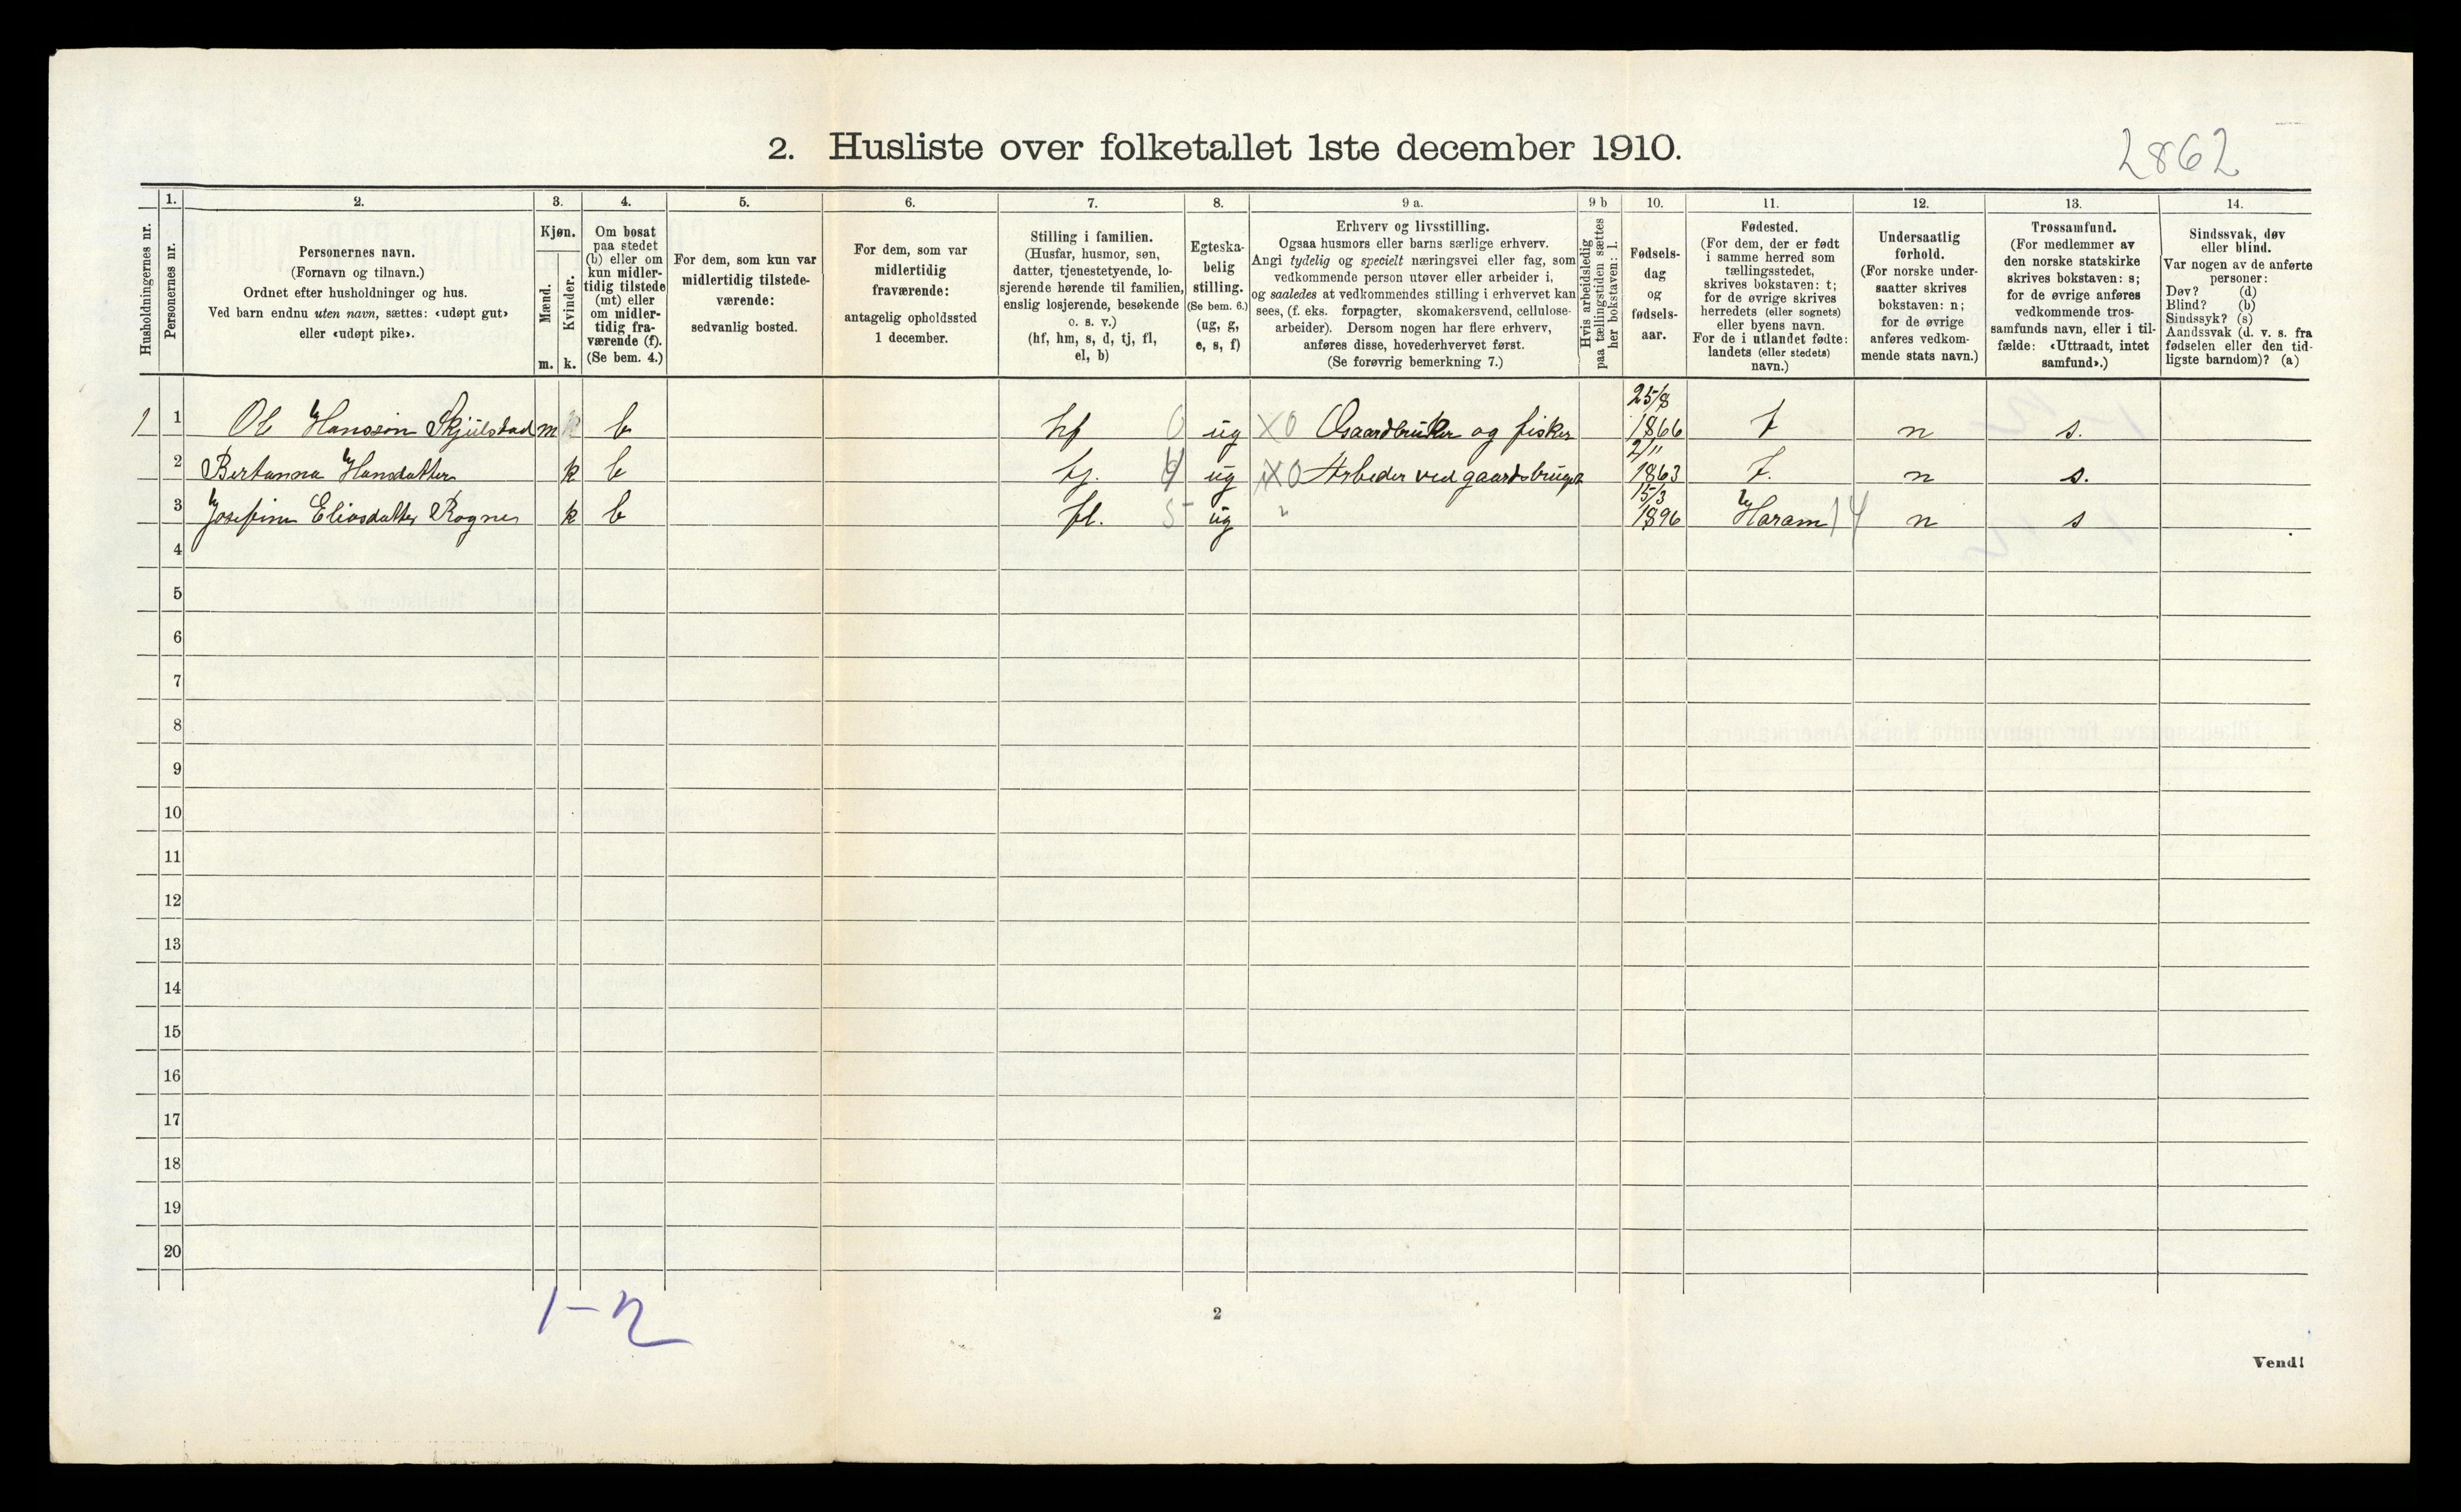 2. Husliste over folketallet 1ste december 1910.
2862
Husholdningernes nr.
1.
Personernes nr.
2.
Personernes navn.
(Fornavn og tilnavn.)
Ordnet efter husholdninger og hus.
Ved barn endnu uten navn, sættes: «udøpt gut»
eller «udøpt pike».
3.
Kjøn.
Mænd.
Kvinder.
m. k.
4.
Om bosat
paa stedet
(b) eller om
kun midler-
tidig tilstede
(mt) eller
om midler-
tidig fra-
værende (f).
(Se bem. 4.)
5.
For dem, som kun var
midlertidig tilstede-
værende:
sedvanlig bosted.
6.
For dem, som var
midlertidig
fraværende:
antagelig opholdssted
1 december.
7.
Stilling i familien.
(Husfar, husmor, søn,
datter, tjenestetyende, lo-
sjerende hørende til familien,
enslig losjerende, besøkende
o. s. v.)
(hf, hm, s, d, tj, fl,
el, b)
8.
Egteska-
belig
stilling.
(Se bem. 6.)
(ug, g,
e, s, f)
9 a.
Erhverv og livsstilling.
Ogsaa husmors eller barns særlige erhverv.
Angi tydelig og specielt næringsvei eller fag, som
vedkommende person utøver eller arbeider i,
og saaledes at vedkommendes stilling i erhvervet kan
sees, (f. eks. forpagter, skomakersvend, cellulose-
arbeider). Dersom nogen har flere erhverv,
anføres disse, hovederhvervet først.
(Se forøvrig bemerkning 7.)
9 b
Hvis arbeidsledig
paa tællingstiden sættes
her bokstaven: l.
10.
Fødsels-
dag
og
fødsels-
aar.
11.
Fødested.
(For dem, der er født
i samme herred som
tællingsstedet,
skrives bokstaven: t;
for de øvrige skrives
herredets (eller sognets)
eller byens navn.
For de i utlandet fødte:
landets (eller stedets)
navn.)
12.
Undersaatlig
forhold.
(For norske under-
saatter skrives
bokstaven: n;
for de øvrige
anføres vedkom-
mende stats navn.)
13.
Trossamfund.
(For medlemmer av
den norske statskirke
skrives bokstaven: s;
for de øvrige anføres
vedkommende tros-
samfunds navn, eller i til-
fælde: «Uttraadt, intet
samfund».)
14.
Sindssvak, døv
eller blind.
Var nogen av de anførte
personer:
Døv? (d)
Blind? (b)
Sindssyk? (s)
Aandssvak (d. v. s. fra
fødselen eller den tid-
ligste barndom)? (a)
1 1 Ole Hansson Skjulstad m b hf 0 ug X0 Gaardbruker og fisker 25/8 1866 t n s.
2 Bertanna Hansdatter k b tj. ug X0 Arbeder ved gaardsbruget 2/11 1863 t. n s.
3 Josefine Eliasdatter Rogne k b fl. 5 ug " 15/3 1896 Haram 14 n s
4
5
6
7
8
9
10
11
12
13
14
15
16
17
18
19
20
1-2
2
Vend!